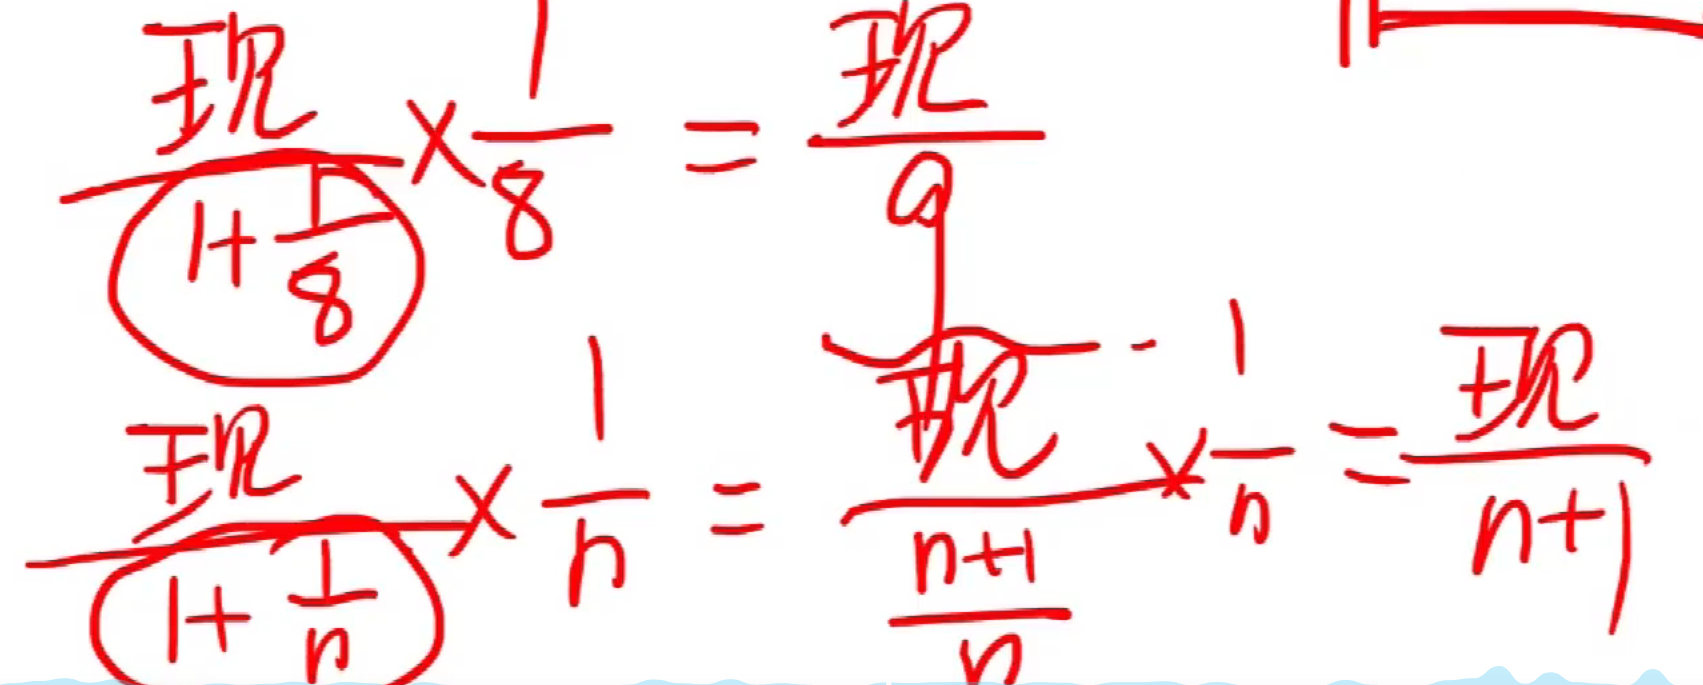 现/(1+1/8) × 1/8 = 现/9
现/(1+1/n) × 1/n = 现/((n+1)/n) × 1/n = 现/(n+1)